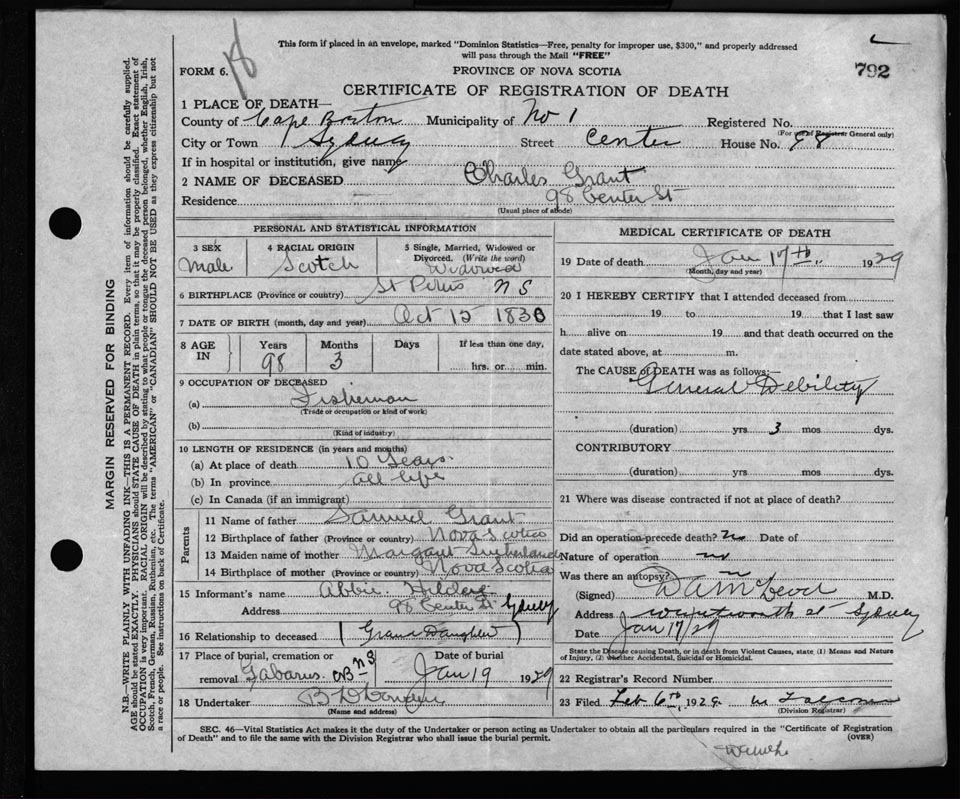 This form if placed in an envelope, marked "Dominion Statistics—Free, penalty for improper use, $300," and properly addressed
will pass through the Mail "FREE"
792
FORM 6.
PROVINCE OF NOVA SCOTIA
CERTIFICATE OF REGISTRATION OF DEATH
1 PLACE OF DEATH—
County of Cape Breton Municipality of No 1 Registered No.
(For use of Registrar General only)
City or Town Sydney Street Center House No. 98
If in hospital or institution, give name
2 NAME OF DECEASED Charles Grant
Residence 98 Center St
(Usual place of abode)
PERSONAL AND STATISTICAL INFORMATION
3 SEX
Male
4 RACIAL ORIGIN
Scotch
5 Single, Married, Widowed or
Divorced. (Write the word)
Widowed
6 BIRTHPLACE (Province or country) St Peters N S
7 DATE OF BIRTH (month, day and year) Oct 12 1830
8 AGE IN
Years Months Days If less than one day,
98 3 hrs. or min.
9 OCCUPATION OF DECEASED
(a) Fisherman
(Trade or occupation or kind of work)
(b)
(Kind of industry)
10 LENGTH OF RESIDENCE (in years and months)
(a) At place of death 10 Years
(b) In province all life
(c) In Canada (if an immigrant)
Parents
11 Name of father Samuel Grant
12 Birthplace of father (Province or country) Nova Scotia
13 Maiden name of mother Margaret Sutherland
14 Birthplace of mother (Province or country) Nova Scotia
15 Informant's name Abbie
Address 98 Center St Sydney
16 Relationship to deceased (Grand Daughter)
17 Place of burial, cremation or removal Gabarus CB NS
Date of burial
Jan 19 1929
18 Undertaker
(Name and address)
MEDICAL CERTIFICATE OF DEATH
19 Date of death Jan 17th, 1929
(Month, day and year)
20 I HEREBY CERTIFY that I attended deceased from
19 to 19 that I last saw
h alive on 19 and that death occurred on the
date stated above, at m.
The CAUSE of DEATH was as follows:—
General Debility
(duration) yrs 3 mos dys.
CONTRIBUTORY
(duration) yrs. mos. dys.
21 Where was disease contracted if not at place of death?
Did an operation precede death? no Date of
Nature of operation no
Was there an autopsy? no
(Signed) M.D.
Address Wentworth St Sydney
Date Jan 17/29
State the Disease causing Death, or in death from Violent Causes, state (1) Means and Nature
of Injury, (2) whether Accidental, Suicidal or Homicidal.
22 Registrar's Record Number
23 Filed Feb 6th, 1929
(Division Registrar)
SEC. 46—Vital Statistics Act makes it the duty of the Undertaker or person acting as Undertaker to obtain all the particulars required in the "Certificate of Registration
of Death" and to file the same with the Division Registrar who shall issue the burial permit. (OVER)
MARGIN RESERVED FOR BINDING
N.B.—WRITE PLAINLY WITH UNFADING INK—THIS IS A PERMANENT RECORD. Every item of information should be carefully supplied.
AGE should be stated EXACTLY. PHYSICIANS should STATE CAUSE OF DEATH in plain terms, so that it may be properly classified. Exact statement of
OCCUPATION is very important. RACIAL ORIGIN will be described by stating to what people or tongue the deceased person belonged, whether English, Irish,
Scotch, French, German, Russian, Ruthenian, etc. The terms "AMERICAN" or "CANADIAN" SHOULD NOT BE USED as they express citizenship but not
a race or people. See instructions on back of Certificate.